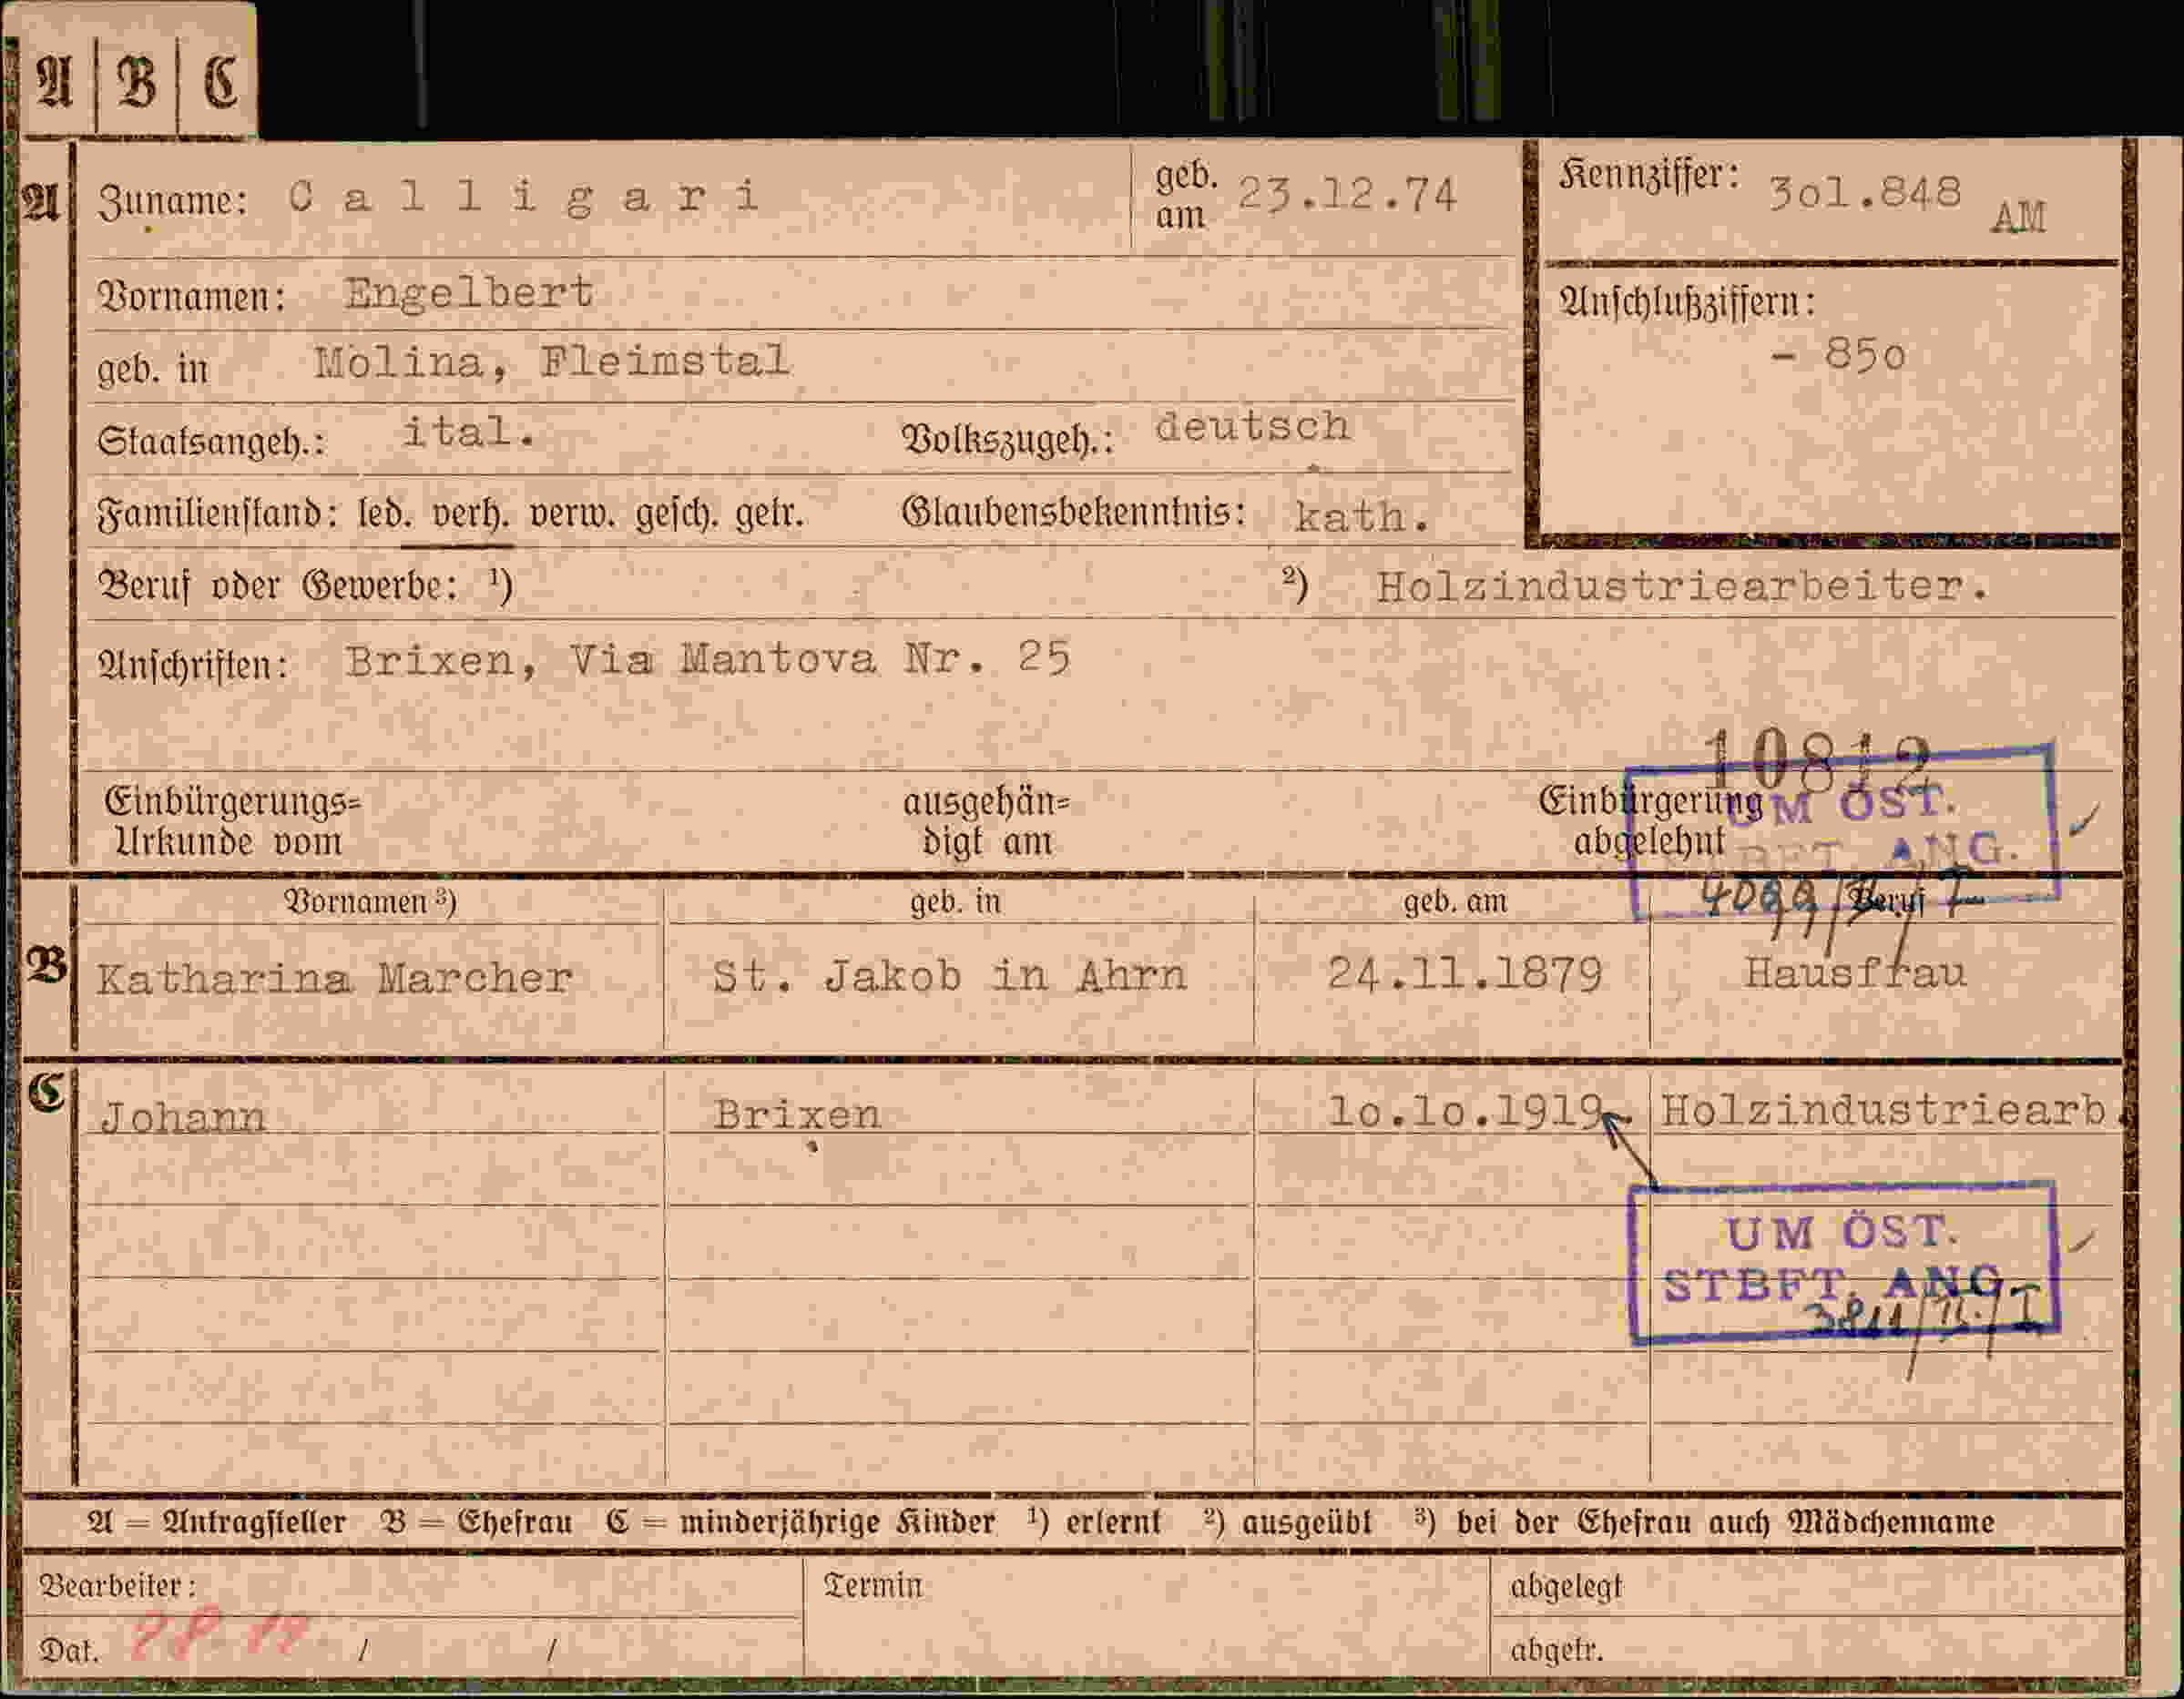 A | B | C
A Zuname: Calligari geb. am 23.12.74 Kennziffer: 3o1.848 AM
Vornamen: Engelbert Anschlußziffern:
geb. in Molina, Fleimstal - 85o
Staatsangeh.: ital. Volkszugeh.: deutsch
Familienstand: led. verh. verw. gesch. getr. Glaubensbekenntnis: kath.
Beruf oder Gewerbe: ¹) ²) Holzindustriearbeiter.
Anschriften: Brixen, Via Mantova Nr. 25
10812
Einbürgerungs= ausgehän= Einbürgerung UM ÖST.
Urkunde vom digt am abgelehnt BFT. ANG.
Vornamen ³) geb. in geb. am Beruf
B Katharina Marcher St. Jakob in Ahrn 24.11.1879 Hausfrau
C Johann Brixen 1o.1o.1919. Holzindustriearb.
UM ÖST.
STBFT. ANG.
A = Antragsteller B = Ehefrau C = minderjährige Kinder ¹) erlernt ²) ausgeübt ³) bei der Ehefrau auch Mädchenname
Bearbeiter: Termin abgelegt
Dat. / / abgetr.